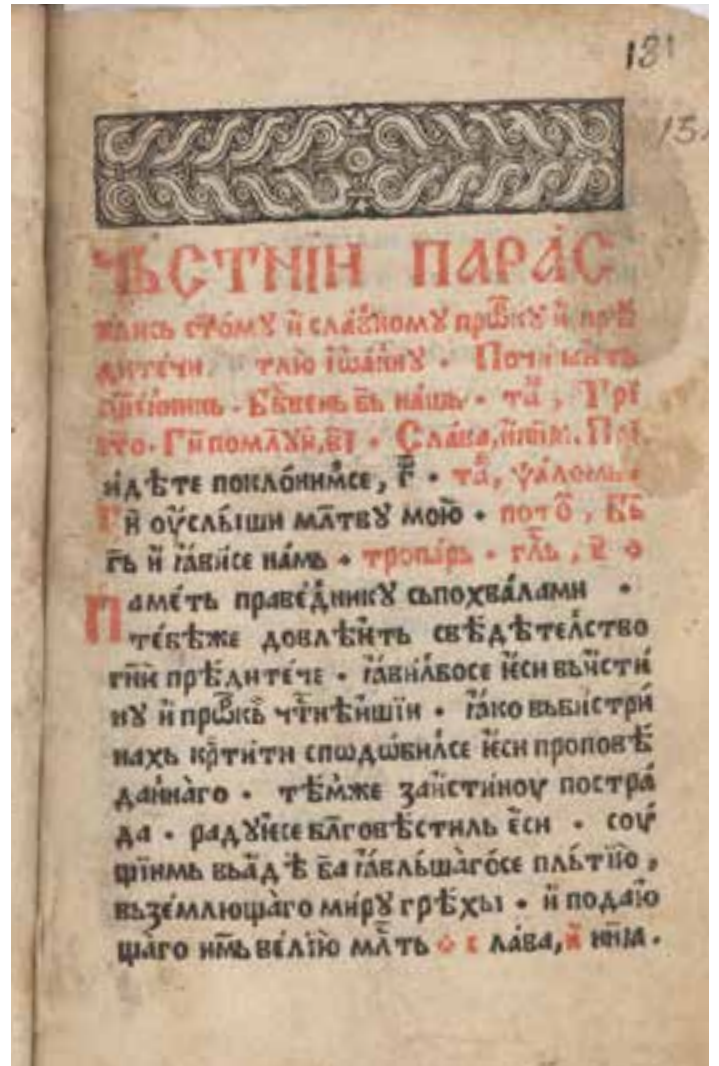 131
ЧЬСТНЇИ ПАРА́С
клись ст҃о́мꙋ и҆ сла́вномꙋ прⷪ҇рокꙋ и҆ прѣ
дитечи тлю їѡа́ннꙋ · Почи
Бл҃свень бь на́шь · таⷤ, Трї
ст҃о · Гн҃ помлꙋи, в҃ї · Сла́ва, и҆ нн҃ꙗ. Прї
идѣте покло́нимсе, г҃ · таⷤ, ѱало́мь ·
Гн҃ ѹ҆слы́ши мл҃твꙋ мою̀ · потоⷨ, Бь
гь и҆ ꙗ҆ви́се на́мь · тропа́рь · гл҃ь, в҃ ·
Паме́ть праве́дникꙋ сьпохва́лами ·
те́бѣже довлѣ́итъ свѣдѣ́телство
гн҃ѥ прѣдите́че · ꙗ҆ви́лбосе ѥ҆си вьи́сти
нꙋ и҆ прⷪ҇ркь чт҃нѣ́ишїи · ꙗ҆́ко вьби́стри
нахь крⷭ҇ти́ти сподѡ́билсе ѥ҆си проповѣ́
да́ннаго · тѣ́мже заи́стинꙋ постра́
да · ра́дꙋѥсе бл҃говѣ́стиль ѥ҆си · соꙋ́
щїимь вьа́дѣ ба ꙗ҆вльша́госе пль́тїю,
вьзе́млющаго ми́рꙋ грѣхы̀ · и҆ пода́ю
щаго и҆мь ве́лїю мл҃ть · с ла́ва, и҆ нн҃ꙗ ·